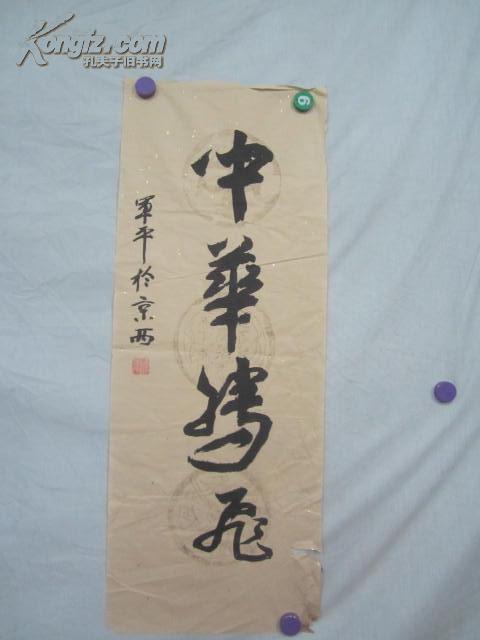 中華騰飛
軍平於京西
Kongfz.com
孔夫子旧书网
6